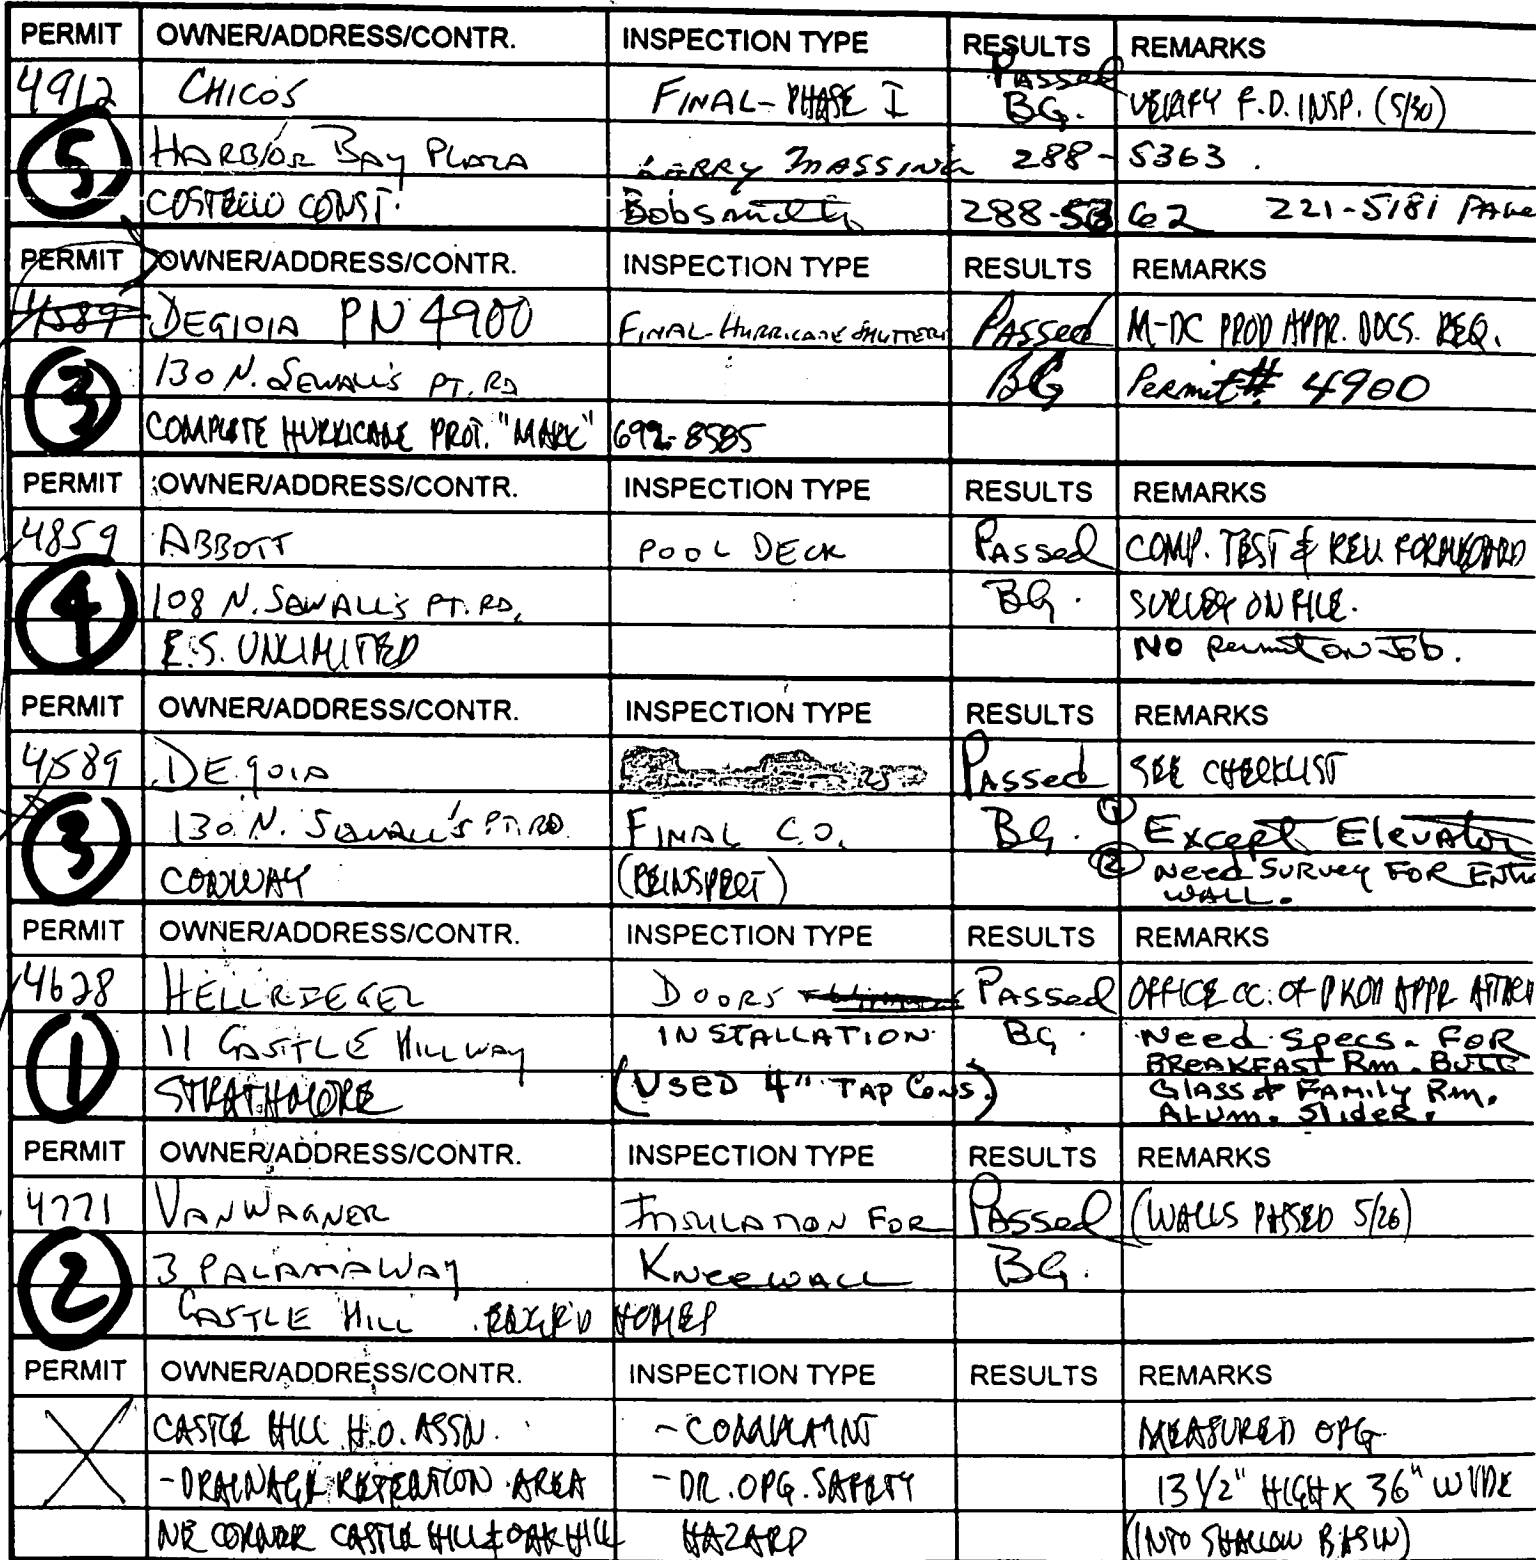 PERMIT OWNER/ADDRESS/CONTR. INSPECTION TYPE RESULTS REMARKS
4912 CHICO'S FINAL-PHASE I Passed BG. VERIFY F.D. INSP. (5/30)
5 HARBOR BAY PLAZA LARRY MASSING 288-5363.
COSTELLO CONST. Bobsmith 288-5362 221-5181 PAGE
PERMIT OWNER/ADDRESS/CONTR. INSPECTION TYPE RESULTS REMARKS
4589 DEGIOIA PN 4900 FINAL-HURRICANE SHUTTERS Passed M-DC PROD APPR. DOCS. REQ.
3 130 N. SEWALL'S PT. RD BG Permit# 4900
COMPLETE HURRICANE PROT. "MARK" 692-8585
PERMIT OWNER/ADDRESS/CONTR. INSPECTION TYPE RESULTS REMARKS
4859 ABBOTT POOL DECK Passed COMP. TEST & REV. FORMBOARD
4 108 N. SEWALL'S PT. RD, BG. SURVEY ON FILE.
E.S. UNLIMITED NO permit on Job.
PERMIT OWNER/ADDRESS/CONTR. INSPECTION TYPE RESULTS REMARKS
4589 DEGIOIA Passed SEE CHECKLIST
3 130 N. SEWALL'S PT. RD. FINAL C.O. BG. ① Except Elevator
CONWAY (REINSPECT) ② Need SURVEY FOR
WALL.
PERMIT OWNER/ADDRESS/CONTR. INSPECTION TYPE RESULTS REMARKS
4628 HELLRIEGEL DOORS Passed OFFICE CC: OF PROD APPR
1 11 CASTLE HILL WAY INSTALLATION BG. Need Specs. FOR
BREAKFAST Rm. BUTT
STRATHMORE (USED 4" TAP CONS.) Glass & FAMILY Rm.
ALUM. SLIDER.
PERMIT OWNER/ADDRESS/CONTR. INSPECTION TYPE RESULTS REMARKS
4771 VANWAGNER INSULATION FOR Passed (WALLS PASSED 5/26)
2 3 PALAMA WAY KNEEWALL BG.
CASTLE HILL HOMES
PERMIT OWNER/ADDRESS/CONTR. INSPECTION TYPE RESULTS REMARKS
CASTLE HILL H.O. ASSN. -COMPLAINT MEASURED OPG
-DRAINAGE RETENTION AREA -DR. OPG. SAFETY 13 1/2" HIGH X 36" WIDE
NE CORNER CASTLE HILL & OAK HILL HAZARD (INTO SHALLOW BASIN)